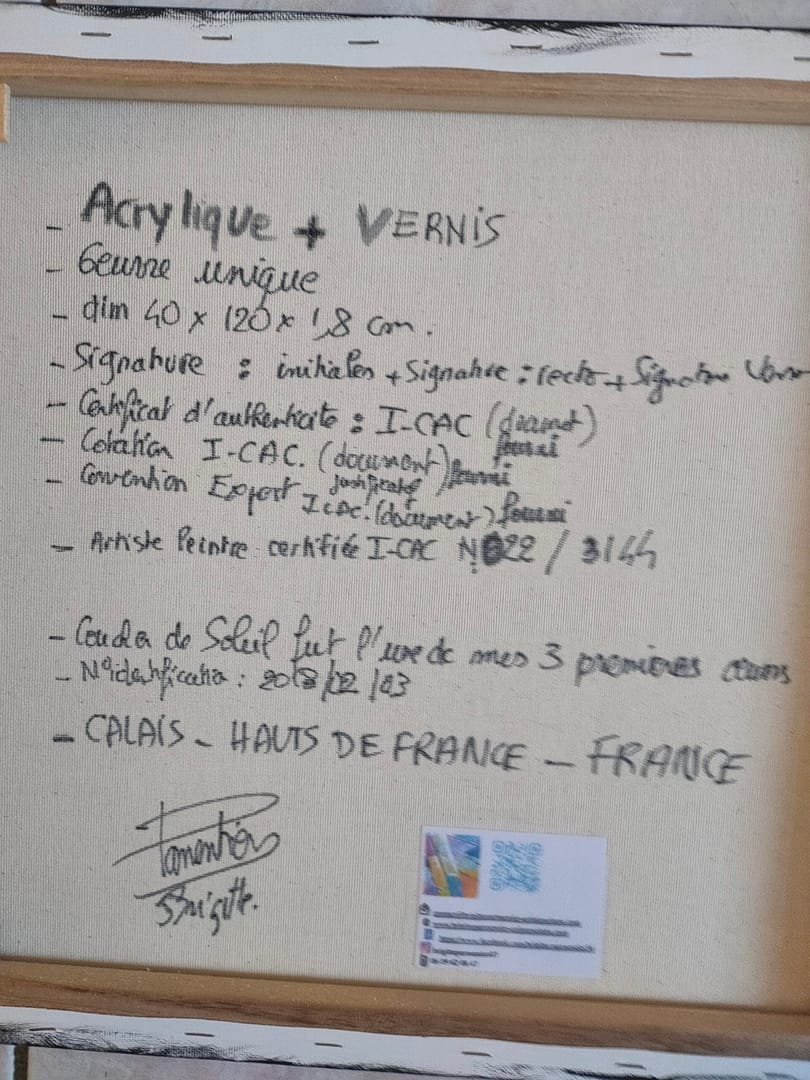 - Acrylique + VERNIS
- Oeuvre unique
- dim 40 x 120 x 1,8 cm.
- Signature : initiales + Signature : recto + Signature Verso
- Certificat d'authenticité : I-CAC (document)
fourni
- Cotation I-CAC. (document) fourni
justificatif
- Convention Expert ICAC. (document) fourni
- Artiste Peintre certifiée I-CAC N°022 / 3144
- de Soleil fut l'une de mes 3 premières
- N°identification : 2018/02/03
- CALAIS - HAUTS DE FRANCE - FRANCE
Parmentier
Brigitte.